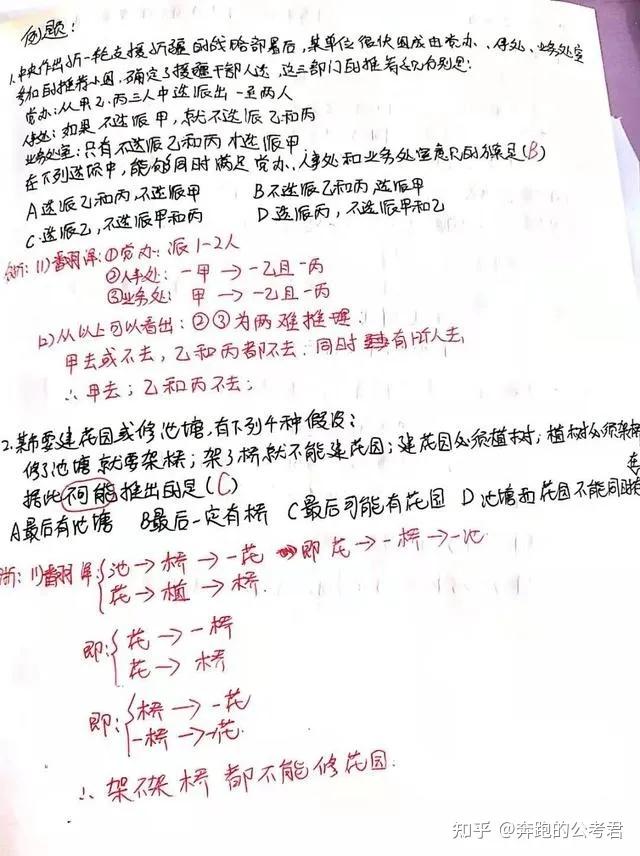 例题：
1.中央作出新一轮支援新疆的战略部署后，某单位很快组成由党办、人事处、业务处室
参加的推荐小组，确定了援疆干部人选，这三部门的推荐意见分别是：
党办：从甲、乙、丙三人中选派出一至两人
人事处：如果不选派甲，就不选派乙和丙
业务处室：只有不选派乙和丙，才选派甲
在下列选项中，能够同时满足党办、人事处和业务处室意见的方案是（B）
A选派乙和丙，不选派甲 B不选派乙和丙，选派甲
C.选派乙，不选派甲和丙 D.选派丙，不选派甲和乙
解析：(1)翻译：①党办：派1-2人
②人事处：－甲→－乙且－丙
③业务处：甲→－乙且－丙
(2)从以上可以看出：②③为两难推理：
甲去或不去，乙和丙都不去．同时有人去，
∴甲去；乙和丙不去；
2.某市要建花园或修池塘，有下列4种假设：
修了池塘就要架桥；架了桥就不能建花园；建花园必须植树；植树必须架桥
据此不可能推出的是（C）
A最后有池塘 B最后一定有桥 C最后可能有花园 D池塘和花园不能同时有
解析：(1)翻译：{池→桥→－花 即花→－桥→－池
花→植→桥．
即：{花→－桥
花→桥
即：{桥→－花
－桥→－花．
∴架不架桥都不能修花园．
知乎 @奔跑的公考君